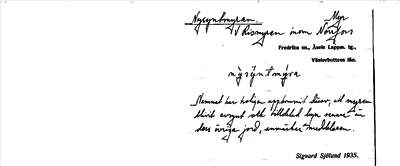 Nysyntmyran. Myr
V Rismyren inom Norrfors
Fredrika sn., Åsele Lappm. tg.,
Västerbottens län.
nỳsýntmýra
Namnet har troligen uppkommit därav, att myren
blivit avsynt och tilldelad byn senare än
dess övriga jord, anmärker meddelaren.
Sigvard Sjölund 1935.